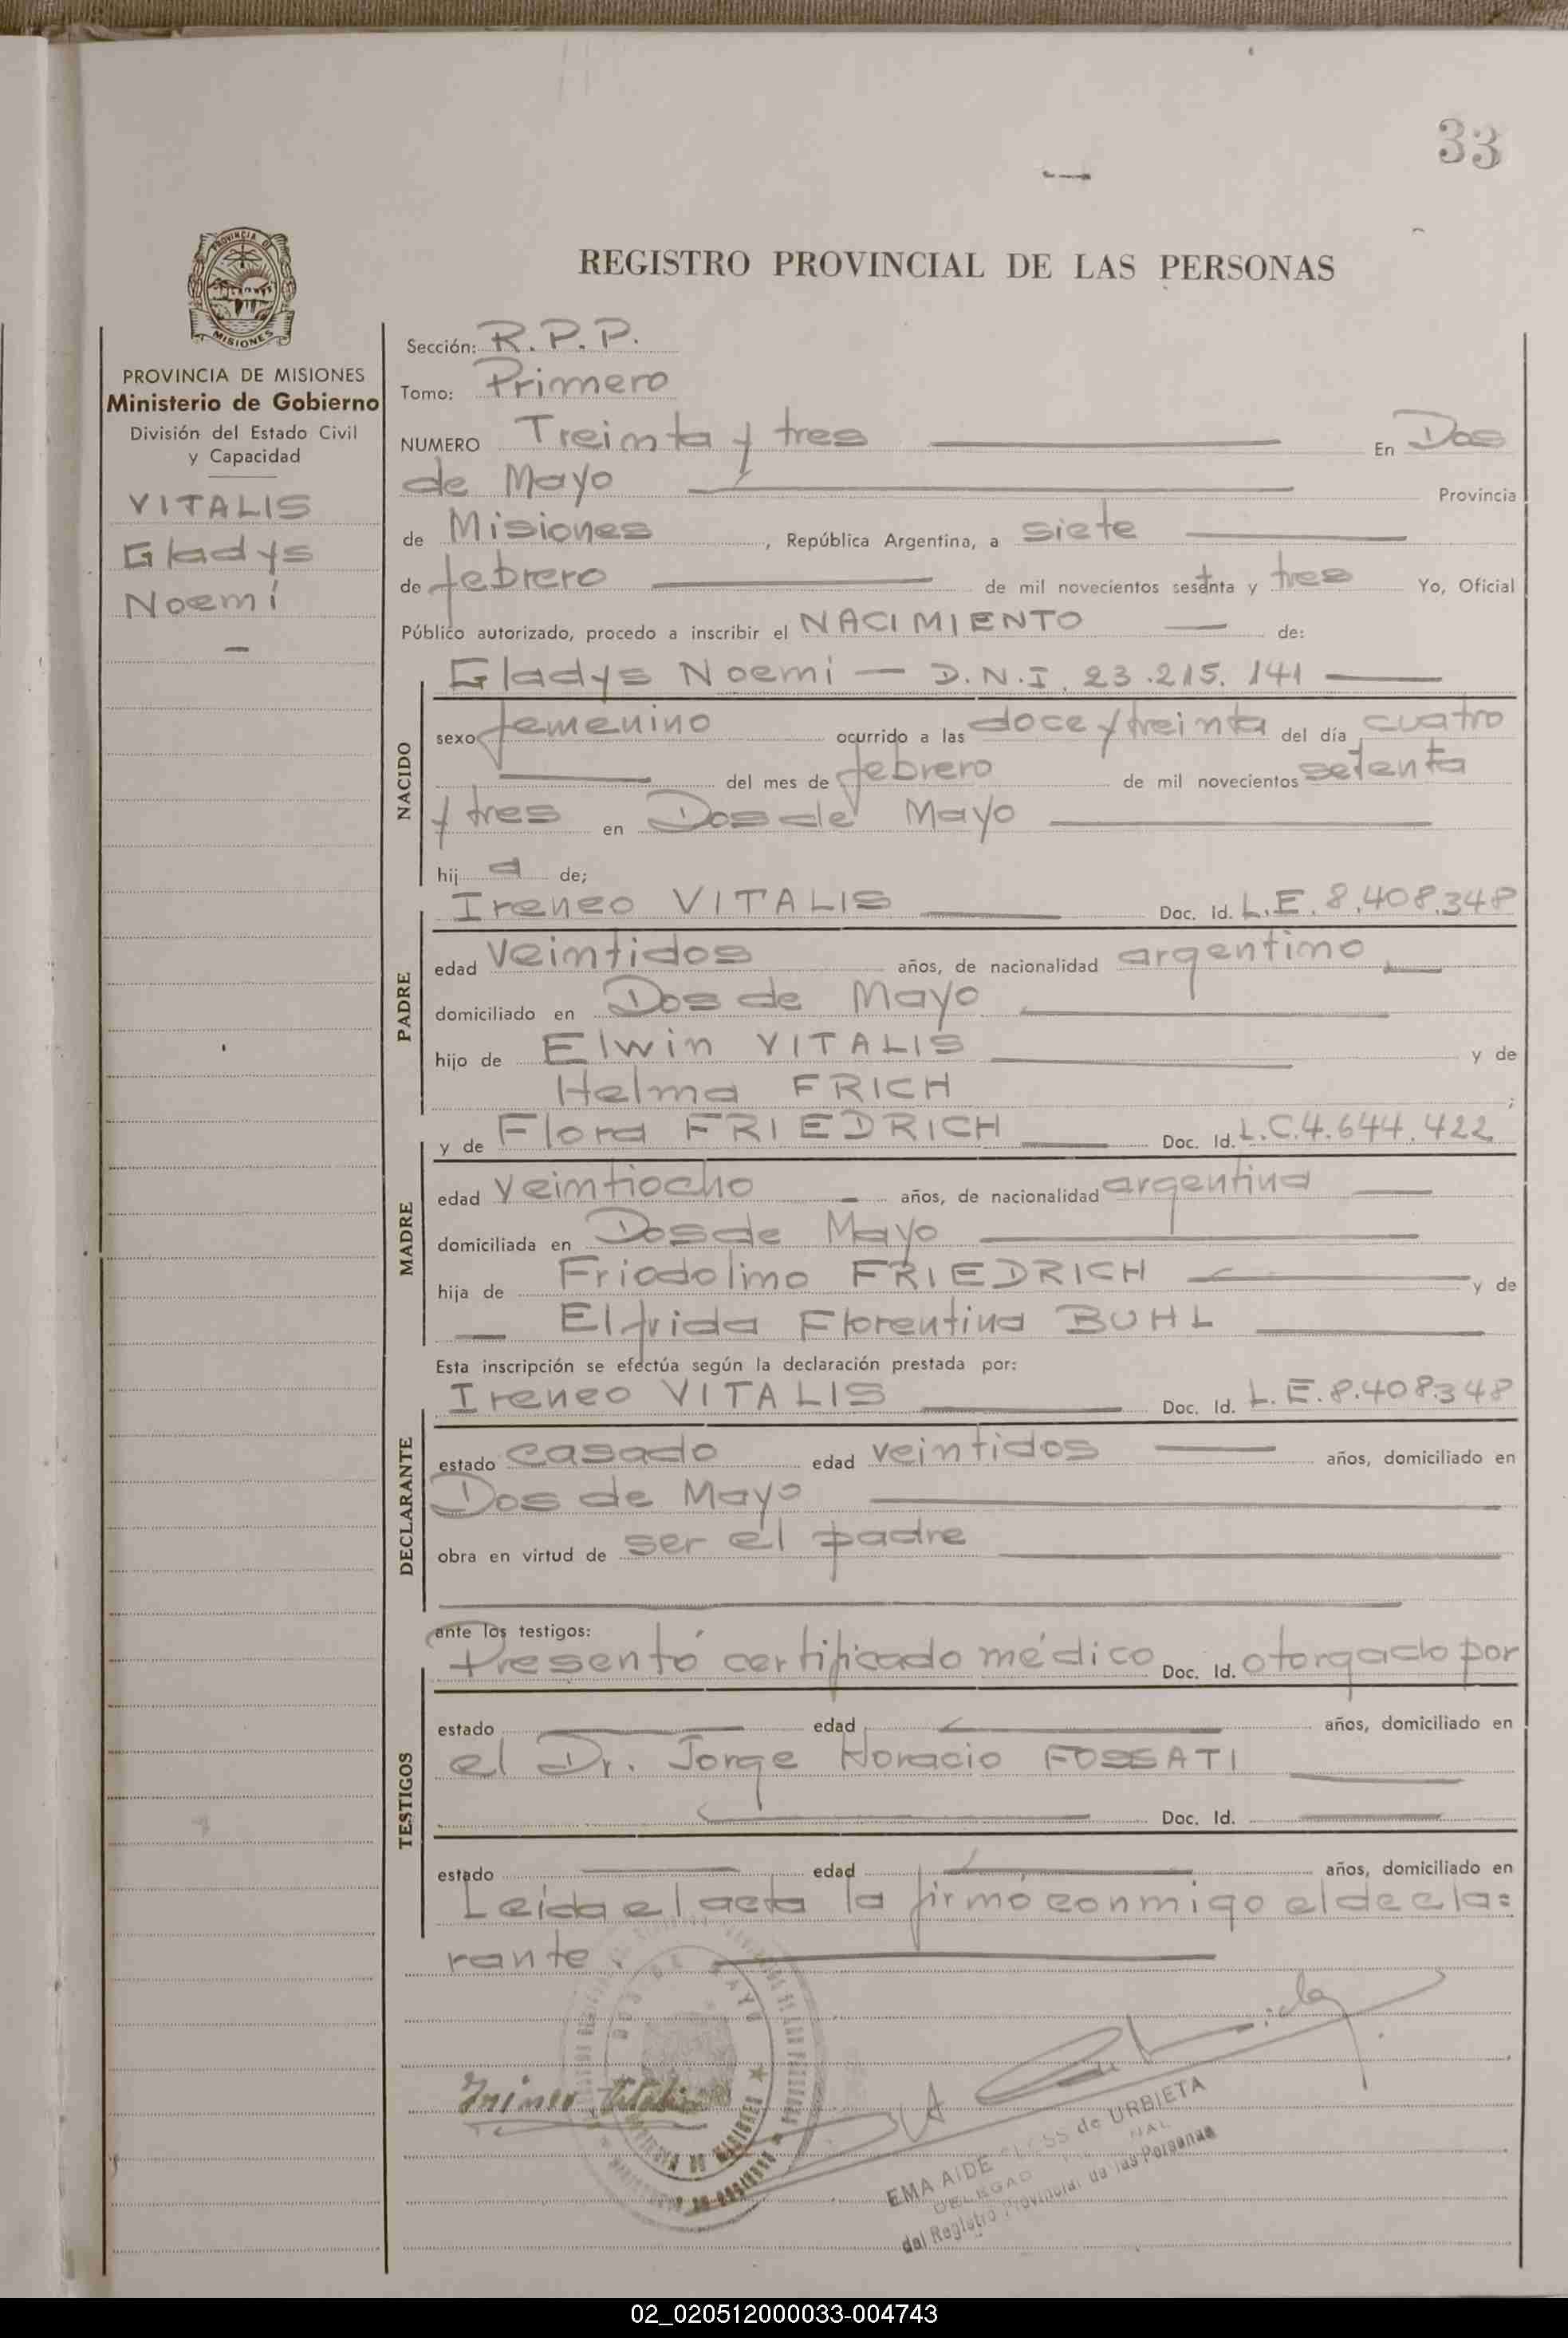 33
PROVINCIA DE
MISIONES
REGISTRO PROVINCIAL DE LAS PERSONAS
PROVINCIA DE MISIONES
Ministerio de Gobierno
División del Estado Civil
y Capacidad
VITALIS
Gladys
Noemí
Sección: R.P.P.
Tomo: Primero
NUMERO Treinta y tres En Dos
de Mayo Provincia
de Misiones, República Argentina, a siete
de febrero de mil novecientos setenta y tres Yo, Oficial
Público autorizado, procedo a inscribir el NACIMIENTO — de:
Gladys Noemi — D.N.I. 23.215.141
NACIDO
sexo femenino ocurrido a las doce y treinta del día cuatro
del mes de febrero de mil novecientos setenta
y tres en Dos de Mayo
hij a de;
Ireneo VITALIS Doc. Id. L.E. 8.408.348
PADRE
edad veintidos años, de nacionalidad argentino
domiciliado en Dos de Mayo
hijo de Elwin VITALIS y de
Helma FRICH ;
y de Flora FRIEDRICH Doc. Id. L.C.4.644.422
MADRE
edad veintiocho años, de nacionalidad argentina
domiciliada en Dos de Mayo
hija de Friodolino FRIEDRICH y de
Elfrida Florentina BUHL
Esta inscripción se efectúa según la declaración prestada por:
Ireneo VITALIS Doc. Id. L.E.8.408.348
DECLARANTE
estado casado edad veintidos años, domiciliado en
Dos de Mayo
obra en virtud de ser el padre
ante los testigos:
Presentó certificado médico Doc. Id. otorgado por
TESTIGOS
estado edad años, domiciliado en
el Dr. Jorge Horacio FOSSATI
Doc. Id.
estado edad años, domiciliado en
Leida el acta la firmó conmigo el decla=
rante.
DOS DE MAYO
Vitalis
EMA AIDE de URBIETA
del Registro Provincial de las Personas
02_020512000033-004743